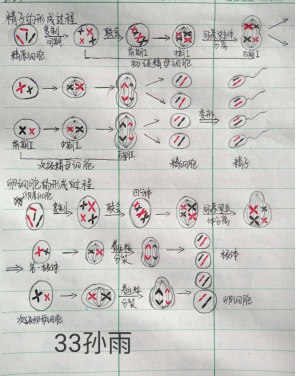 精子的形成过程
复制 联会 同源染色体
间期 分离
精原细胞 前期I 中期I 后期I
初级精母细胞
变形
前期II 中期II 后期II
次级精母细胞 精细胞 精子
卵细胞的形成过程
卵原细胞 四分体
复制 联会 同源染色体分离
着丝粒
分裂
第一极体 极体
着丝粒
分裂 卵细胞
次级卵母细胞
33孙雨